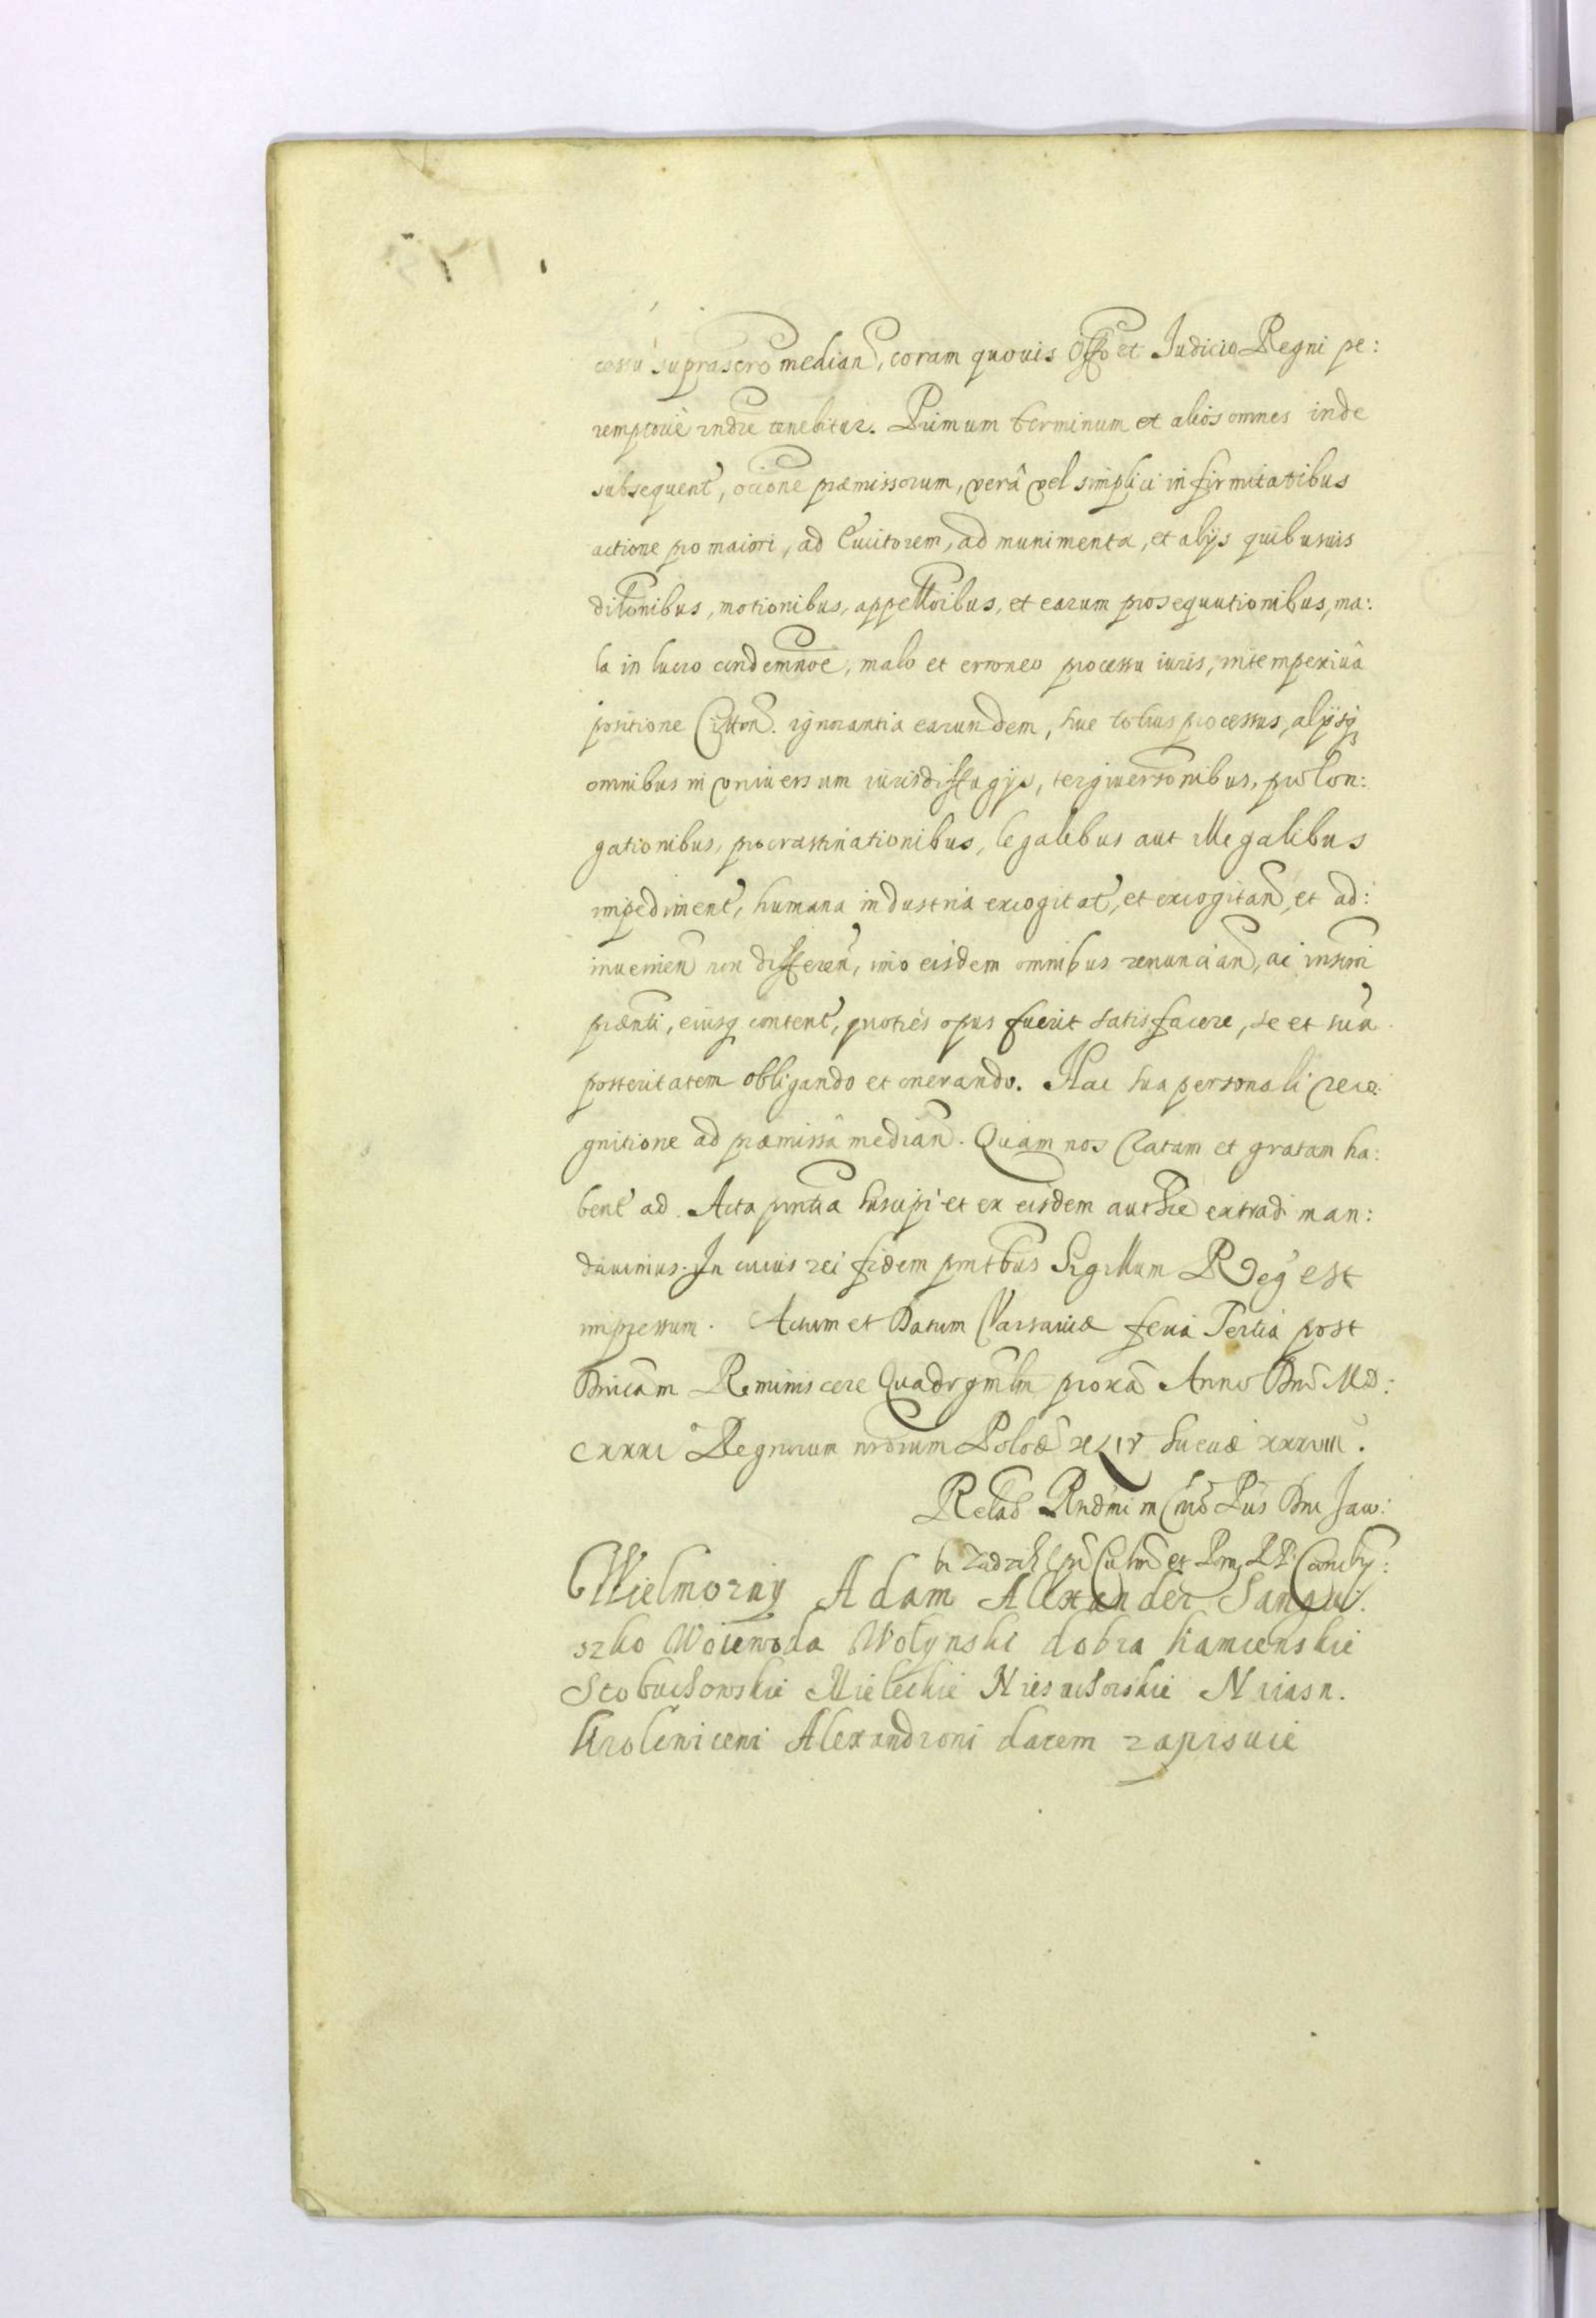 cessu suprascro median, coram quouis Offo et Judicio Regni pe:
remptorie rndre tenebitur. Primum terminum et alios omnes inde
subsequent, occione præmissorum, verâ vel simplici infirmitatibus
actione pro maiori, ad Euictorem, ad munimenta, et alijs quibusuis
dilonibus, motionibus, appelloibus, et earum prosequutionibus, ma:
la in lucro condemnoe, malo et erroneo processu iuris, intempestiuâ
positione Citton. ignorantia earundem, siue totius processus, alijsq
omnibus in vniuersum iuris diffugijs, tergiuersonibus, prolon:
gationibus, procrastinationibus, legalibus aut illegalibus
impediment, humana industria excogitat, et excogitan, et ad:
inuenien non differen, imo eisdem omnibus renuncian, ac inscroni
præenti, eiusq content, quoties opus fuerit satisfacere, se et suâ
posteritatem obligando et onerando. Hac sua personali reco:
gnitione ad præmissa median. Quam nos ratam et gratam ha:
bent ad Acta pnta suscipi et ex eisdem authce extradi man:
dauimus. In cuius rei fidem pntbus Sigillum Reg est
impressum. Actum et Datum Varsauiæ feria Tertia post
Dnicam Reminiscere Quadrgmlm proxa Anno Dni MD:
CXXXI Regnorum nrorum Polo XLIV Sueuæ XXXVIII.
Relao Rndmi in Cruo Pris Dni Jaco:
bi Zadzik Epi Culmn et Pom, RP Cancly:
Wielmozny Adam Alexander Sangu:
szko Woiewoda Wołynski dobra Kamienskie
Stobuchowskie Mieleckie Niesuchoiskie Naiasn.
Krolewicowi Alexandrowi darem zapisuie